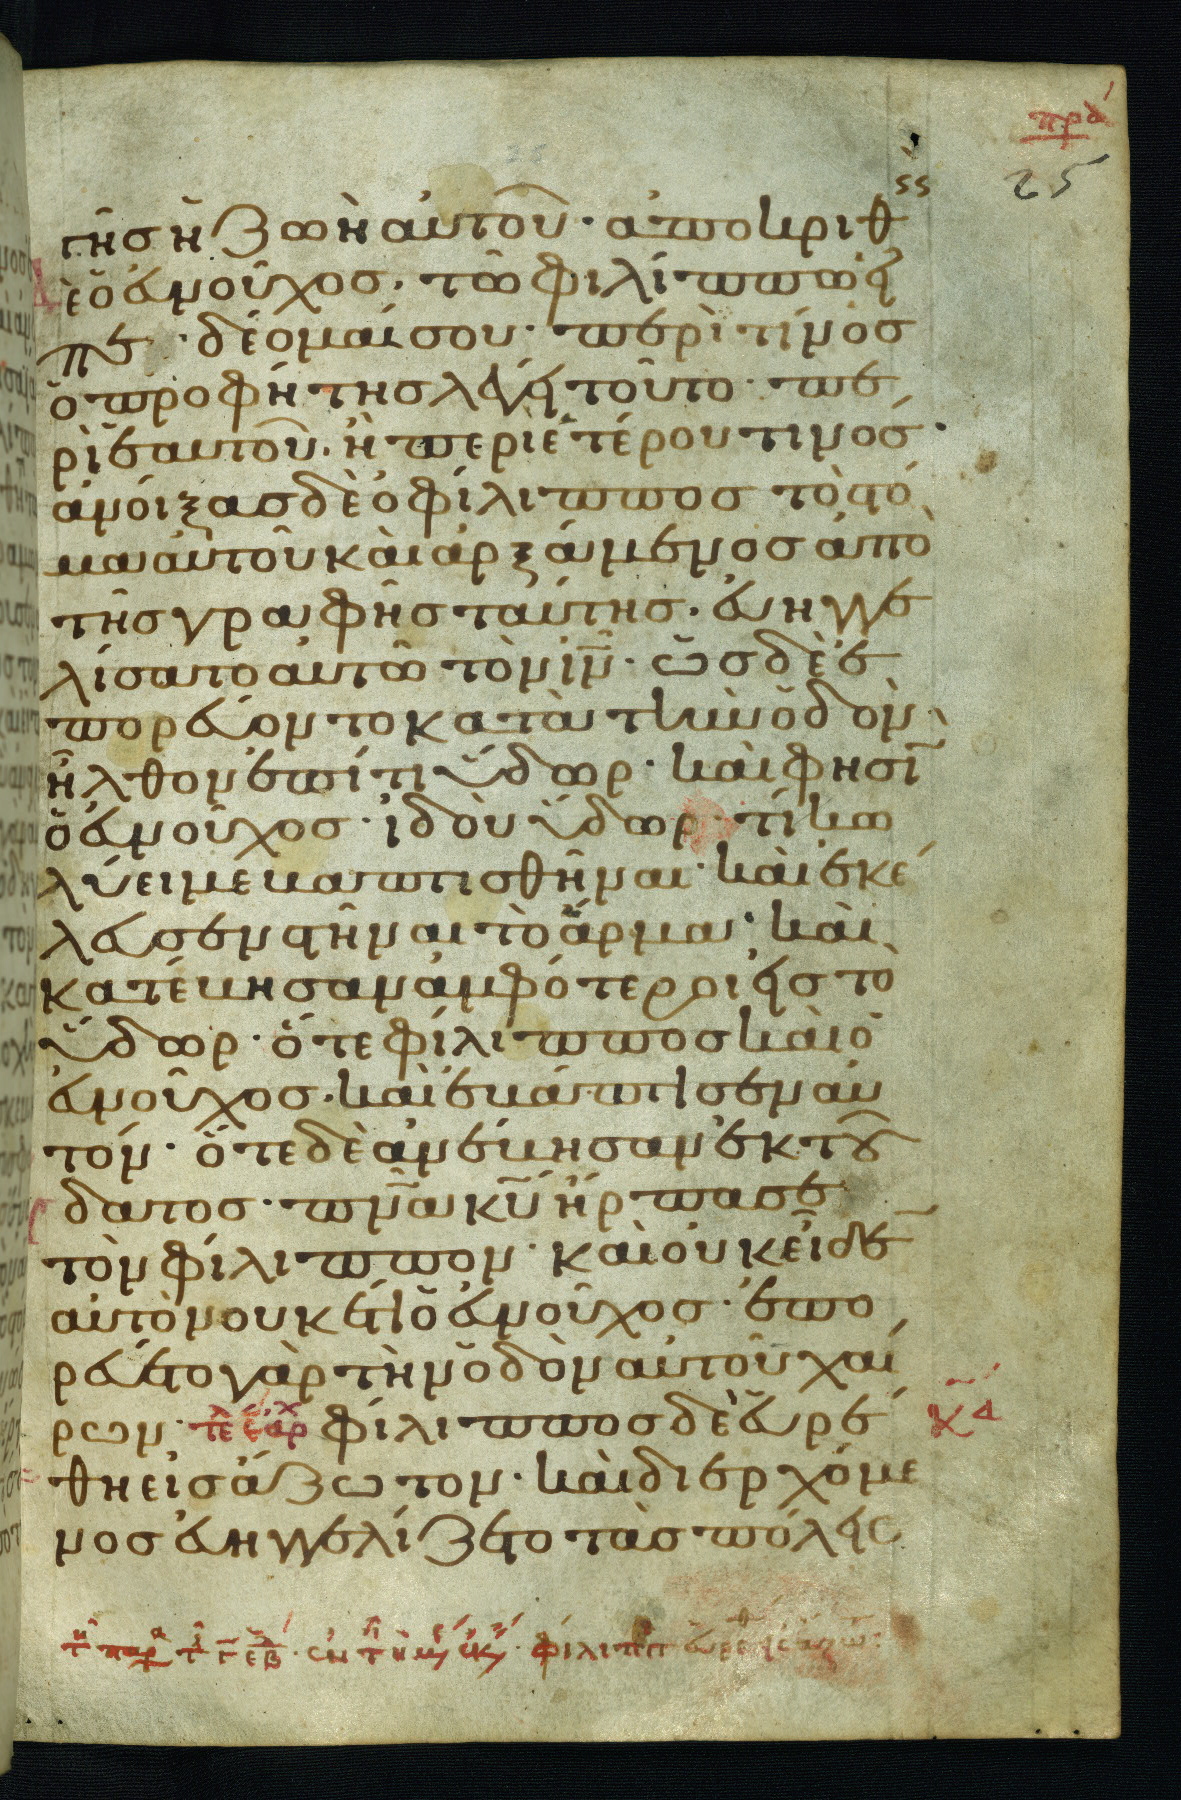 πρα
25
γῆς ἡ ζωὴ αὐτοῦ· ἀποκριθ
ε ὁ εὐνοῦχος· τῶ φιλίππω εἶ
πε· δέομαί σου· περὶ τίνος
ὁ προφήτης λέγει τοῦτο· πε
ρὶ ἑαυτοῦ· ἢ περὶ ἑτέρου τινός·
ἀνοίξας δὲ ὁ φίλιππος τὸ στό
μα αὐτοῦ καὶ ἀρξάμενος ἀπὸ
τῆς γραφῆς ταύτης· εὐηγγε
λίσατο αὐτῶ τὸν ιν· ὡς δὲ ἐ
πορεύοντο κατὰ τὴν ὁδὸν·
ἦλθον ἐπί τι ὕδωρ· καὶ φησὶ
ὁ εὐνοῦχος· ἰδοὺ ὕδωρ· τί κω
λύει με βαπτισθῆναι· καὶ ἐκέ
λευσεν στῆναι τὸ ἅρμα· καὶ
κατέβησαν ἀμφότεροι εἰς τὸ
ὕδωρ· ὅ τε φίλιππος καὶ ὁ
εὐνοῦχος· καὶ ἐβάπτισεν αὐ
τόν· ὅτε δὲ ἀνέβησαν ἐκ τοῦ
δατος· πνα κυ ἥρπασε
τὸν φίλιππον· καὶ οὐκ εἶδε
αὐτὸν οὐκέτι ὁ εὐνοῦχος· ἐπο
ρεύετο γὰρ τὴν ὁδὸν αὐτοῦ χαί
ρων· τε αρχ φίλιππος δὲ εὑρέ
θη εἰς ἄζωτον· καὶ διερχόμε
νος εὐηγγελίζετο τὰς πόλεις
κδ
φίλιππ